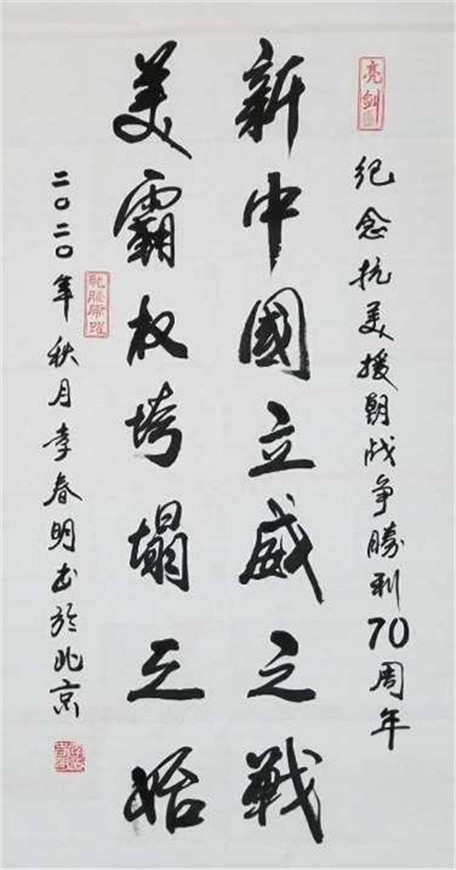 亮剑
纪念抗美援朝战争勝利70周年
新中國立威之戰
美霸权垮塌之始
二〇二〇年秋月李春明书於北京